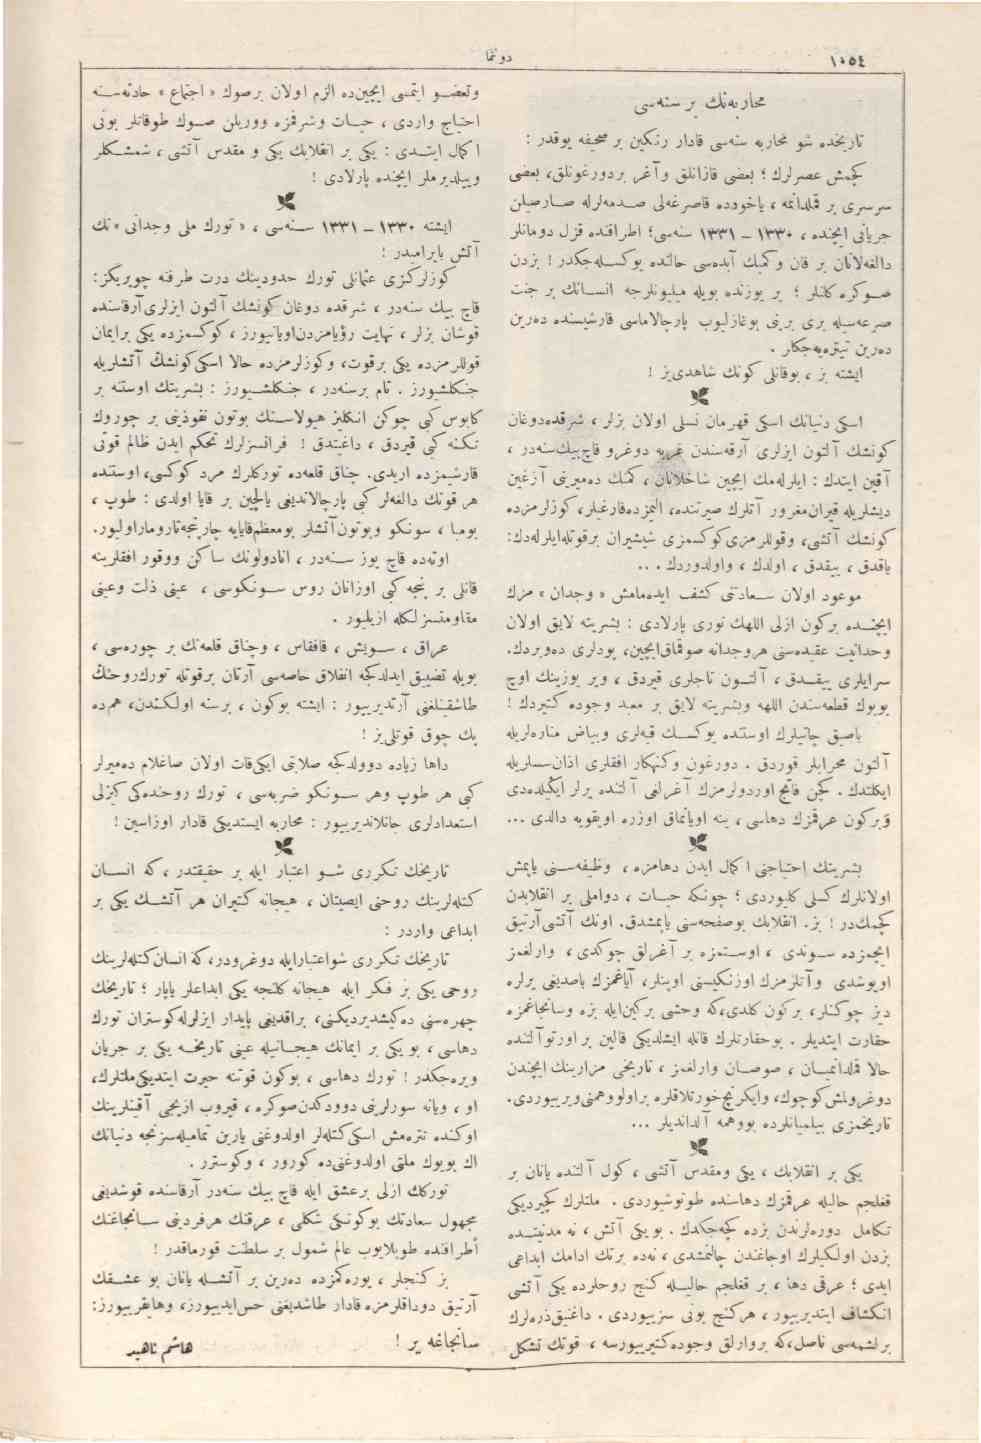 ١٠٥٤
دوننما
محاربه‌نك بر سنه‌سی
تاریخده شو محاربه سنه‌سی قادار رنكین بر صحیفه یوقدر :
كچمش عصرلرك ؛ بعضی قازانلق وآغر بر دورغونلق، بعضی
سرسری بر قملدانمه ، یاخودده قاصرغه‌لی صدمه‌لرله صارصیلن
جریانی ایچنده ، ١٣٣٠ – ١٣٣١ سنه‌سی؛ اطرافنده قزل دومانلر
دالغه‌لانان بر قان وكمیك آبده‌سی حالنده یوكسله‌جكدر ! بزدن
صوكره كلنلر ؛ بر یوزنده بویله میلیونلرجه انسانك بر جنت
صرعه‌سیله بری برینی بوغازلیوب پارچالاماسی قارشیسنده ده‌رین
ده‌رین تیتره‌یه‌جكلر .
ایشته بز ، بوقانلی كونك شاهدی‌یز !
اسكی دنیانك اسكی قهرمان نسلی اولان بزلر ، شرقده‌دوغان
كونشك آلتون ایزلری آرقه‌سندن غربه دوغرو قاچ‌بیك‌سنه‌در ،
آقین ایتدك : ایلرله‌مك ایچین شاخلانان ، كمك ده‌میرینی آزغین
دیشلریله قیران‌مغرور آتلرك صیرتنده، الیمزده‌قارغیلر، كوزلرمزده
كونشك آتشی، وقوللرمزی‌كوكسمزی شیشیران برقوتله‌ایلرله‌دك:
یاقدق ، ییقدق ، اولدك ، واولدوردك . ..
موعود اولان سعادتی كشف ایده‌مامش « وجدان » مزك
ایچنده بركون ازلی اللهك نوری پارلادی : بشریته لایق اولان
وحدانیت عقیده‌سنی هروجدانه صوقماق‌ایچین، بودلری ده‌ویردك.
سرایلری ییقدق ، آلتون تاجلری قیردق ، ویر یوزینك اوچ
بویوك قطعه‌سندن اللهه وبشریته لایق بر معبد وجوده كتیردك !
باصیق چاتیلرك اوستنده یوكسك قبه‌لری وبیاض مناره‌لریله
آلتون محرابلر قوردق . دورغون وكنهكار افقلری اذان‌سسلریله
ایكلتدك . كچن فاتح اوردولرمزك آغرلغی آلتنده یرلر ایكیلده‌دی
وبركون عرقمزك دهاسی ، ینه اویانماق اوزره اویقویه دالدی ...
بشریتك احتیاجنی اكمال ایدن دهامزه ، وظیفه‌سنی یاپمش
اولانلرك كسلی كلیوردی ؛ چونكه حیات ، دواملی بر انقلابدن
كچمك‌در ! بز. انقلابك بوصفحه‌سنی یاپمشدق. اونك آتشی‌آرتیق
ایچمزده سوندی ، اوستمزه بر آغرلق چوكدی ، وارلغمز
اویوشدی وآتلرمزك اوزنكیسنی اوپنلر، آیاغمزك باصدیغی یرلره
دیز چوكنلر، بركون كلدی،كه وحشی بركین‌ایله بزه وسانجاغمزه
حقارت ایتدیلر . بوحقارتلرك قانله ایشلدیكی قالین بر اورتوآلتنده
حالا قملدانمیان ، صوصان وارلغمز ، تاریخی مزارینك ایچندن
دوغرولمش‌كوچوك، وایكرنج‌خورتلاقلره براولووهمنی‌ویریبوردی.
تاریخمزی بیلمیانلرده بووهمه آلداندیلر ...
یكی بر انقلابك ، یكی ومقدس آتشی ، كول آلتنده یانان بر
قغلجم حالیله عرقمزك دهاسنده طوتوشیوردی . ملتلرك كچیردیكی
تكامل دوره‌لرندن بزده كچه‌جكدك . بویكی آتش، نه مدنیتده
بزدن اولكیلرك اوجاغندن چالنمشدی ، نه‌ده برتك ادامك ابداعی
ایدی ؛ عرقی دها ، بر قغلجم حالیله كنج روحلرده یكی آتشی
انكشاف ایتدیریبور ، هركنج بونی سزیبوردی . داغنیق‌ذره‌لرك
برلشمه‌سی ناصل،كه بروارلق وجوده‌كتیریبورسه ، قوتك تشكل
وتعضو ایتمسی ایچین‌ده الزم اولان برصوك « اجتماع » حادثه‌سنه
احتیاج واردی ، حیات وشرفمزه وورولن صوك طوقاتلر بونی
اكمال ایتدی : یكی بر انقلابك یكی و مقدس آتشی ، شمشكلر
وییلدیرملر ایچنده پارلادی !
ایشته ١٣٣٠ – ١٣٣١ سنه‌سی ، « تورك ملی وجدانی » نك
آتش بایرامیدر !
كوزلركزی عثمانلی تورك حدودینك درت طرفنه چویریكز:
قاچ بیك سنه‌در ، شرقده دوغان كونشك آلتون ایزلری‌آرقاسنده
قوشان بزلر ، نهایت رؤیامزدن‌اویانیورز ، كوكسمزده یكی برایمان
قوللرمزده یكی برقوت، وكوزلرمزده حالا اسكی‌كونشك آتشلریله
جنكلشیورز . تام برسنه‌در ، جنكلشیورز : بشریتك اوستنه بر
كابوس كبی چوكن انكلیز هیولاسنك بوتون نفوذینی بر چوروك
تكنه كبی قیردق ، داغیتدق ! فرانسزلرك تحكم ایدن ظالم قوتی
قارشیمزده اریدی. چناق قلعه‌ده توركلرك مرد كوكسی، اوستنده
هر قوتك دالغه‌لر كبی پارچالاندیغی یالچین بر قایا اولدی : طوپ ،
بومبا ، سونكو وبوتون‌آتشلر بومعظم‌قایایه چارپنجه‌تاروماراولیور.
اوته‌ده قاچ یوز سنه‌در ، اناداولونك ساكن ووقور افقلرینه
قانلی بر پنجه كبی اوزانان روس سونكوسی ، عینی ذلت وعینی
مقاومتسزلكله ازیلیور .
عراق ، سویش ، قافقاس ، وچناق قلعه‌نك بر چوره‌سی ،
بویله تضییق ایدلدكجه انفلاق خاصه‌سی آرتان برقوتله تورك‌روحنك
طاشقینلغنی آرتدیریبور : ایشته بوكون ، برسنه اولكندن، هم‌ده
پك چوق قوتلی‌یز !
داها زیاده دوولدكجه صلابتی ایكی‌قات اولان صاغلام ده‌میرلر
كبی هر طوپ وهر سونكو ضربه‌سی ، تورك روحنده‌كی كیزلی
استعدادلری جانلاندیریبور : محاربه ایستدیكی قادار اوزاسین !
تاریخك تكرری شو اعتبار ایله بر حقیقتدر ، كه انسان
كتله‌لرینك روحنی ایصیتان ، هیجانه كتیران هر آتشك یكی بر
ابداعی واردر :
تاریخك تكرری شواعتبارایله دوغرودر، كه انسان‌كتله‌لرینك
روحی یكی بر فكر ایله هیجانه كلنجه یكی ابداعلر یاپار ؛ تاریخك
چهره‌سنی ده‌كیشدیردیكنی، براقدیغی پایدار ایزلرله‌كوستران تورك
دهاسی ، بو یكی بر ایمانك هیجانیله عینی تاریخه یكی بر جریان
ویره‌جكدر ! تورك دهاسی ، بوكون قوتنه حیرت ایتدیكی‌ملتلرك،
او ، ویانه سورلرینی دوودكدن‌صوكره ، قیروب ازیجی آقینلرینك
اوكنده تتره‌مش اسكی‌كتله‌لر اولدوغنی یارین تمامیله‌سزنجه دنیانك
اك بویوك ملتی اولدوغنی‌ده كورور ، وكوسترر .
توركك ازلی برعشق ایله قاچ بیك سنه‌در آرقاسنده قوشدیغی
مجهول سعادتك بوكونكی شكلی ، عرقنك هرفردینی سانجاغنك
اطرافنده طوپلایوب عالم شمول بر سلطنت قورماقدر !
بز كنجلر ، یوره‌كمزده ده‌رین بر آتشله یانان بو عشقك
آرتیق دوداقلرمزه قادار طاشدیغنی حس‌ایدیبورز، وهایقریبورز:
سانجاغه یر !
هاشم ناهید